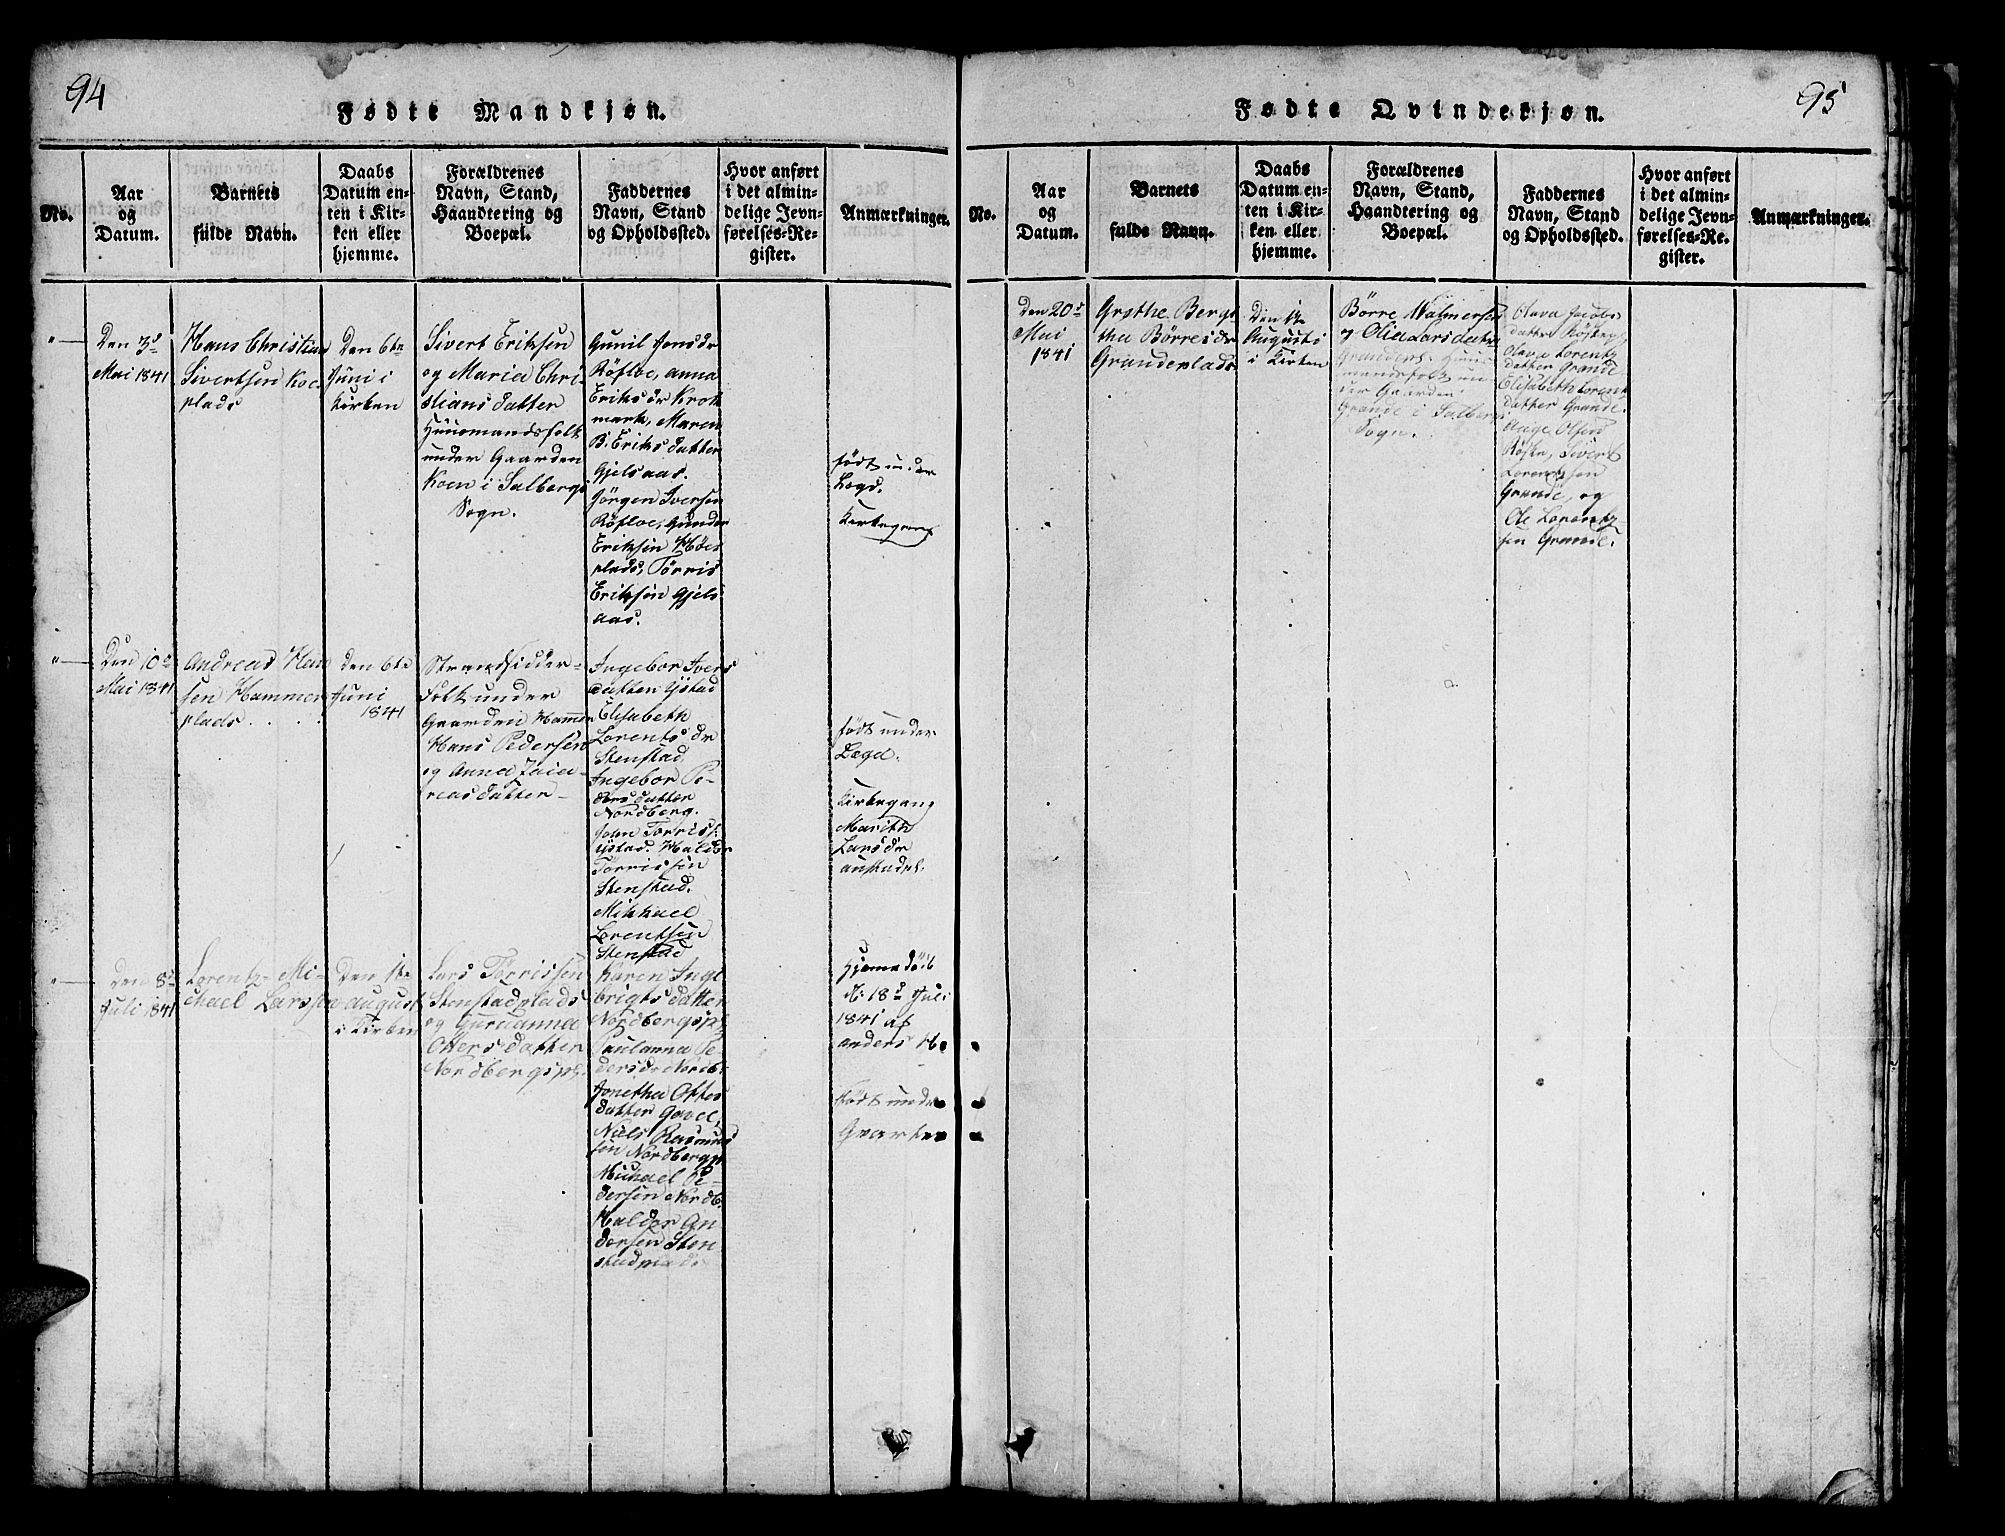 94
Fødte Mandkjøn.
No.
Aar
og
Datum.
Barnets
fulde Navn.
Daabs
Datum en-
ten i Kir-
ken eller
hjemme.
Forældrenes
Navn, Stand,
Haandtering og
Boepæl.
Faddernes
Navn, Stand
og Opholdssted.
Hvor anført
i det almin-
delige Jevn-
førelses-Re-
gister.
Anmærkninger.
"
Den 3d
Mai 1841
Hans Christian
Sivertsen Koe
plads
Den 6te
Juni i
Kirken
Sivert Eriksen
og Maria Chri-
stians datter
Huusmandsfolk
under Gaarden
Koen i Salbergs
Sogn.
Gunil Jonsdr
Röfloe, anna
Eriksdr Krok
mark, Maren
B. Eriks datter
Gjelsaas.
Jörgen Iversen
Röfloe, Gunder
Eriksen
plads, Törris
Eriksen Gjels
aas.
födt under
Lægd.
Kirkegang
"
Den 10d
Mai 1841
Andreas Han
sen Hammer
plads . . .
den 6te
Juni
1841
Strandsidder-
Folk under
Gaarden Hammer
Hans Pedersen
og Anna
reasdatter-
Ingebor Ivers
datter Ystad
Elisabeth
Lorents dr
Stenstad
Ingebor Pe-
dersdatter
Nordberg.
John Törriss:
Ystad. Haldor
Törrissen
Stenstad.
Mikkael
Lorentsen
Stenstad
födt under
Lægd.
Kirkegang
Marith
Larsdr
"
Den 8d
Juli 1841
Lorentz Mi-
chael Larssen
Den 1te
august
i Kirken
Lars Törrissen
Stenstadplads
og Guruanna
Otters datter
Nordbergspl.
Karen Inge
brigts datter
Nordbergspl:
Paulanna Pe
dersdr Nordb:
Jonetha Ottes
datter Gavel,
Niels Rasmus
sen Nordbergpl
Michael Pe-
dersen Nordb.
Haldor An
dersen Sten
stadplads
Hjemmedöbt
d: 18d Juli
1841 af
anders H
Födt unde
95
Fødte Qvindekjøn.
No.
Aar
og
Datum.
Barnets
fulde Navn.
Daabs
Datum en-
ten i Kir-
ken eller
hjemme.
Forældrenes
Navn, Stand,
Haandtering og
Boepæl.
Faddernes
Navn, Stand
og Opholdssted.
Hvor anført
i det almin-
delige Jevn-
førelses-Re-
gister.
Anmærkninger.
Den 20d
Mai
1841
Grethe Berge
tha Börresdr
Granderplads
Den 1te
Augusti
i Kirken
Börre Halmersen
og Olia Larsdatter
Grandert: Huus
mandsfolk un
der Gaarden
Grande i Salbergs
Sogn.
Olava Jacobs
datter
Olava Lorentz
datter Grande
Elisabeth Lorentz
datter Grande.
Aage Olsen
Röske, Sivert
Lorentzsen
Grande, og
Ole Lorentz-
sen Grande.